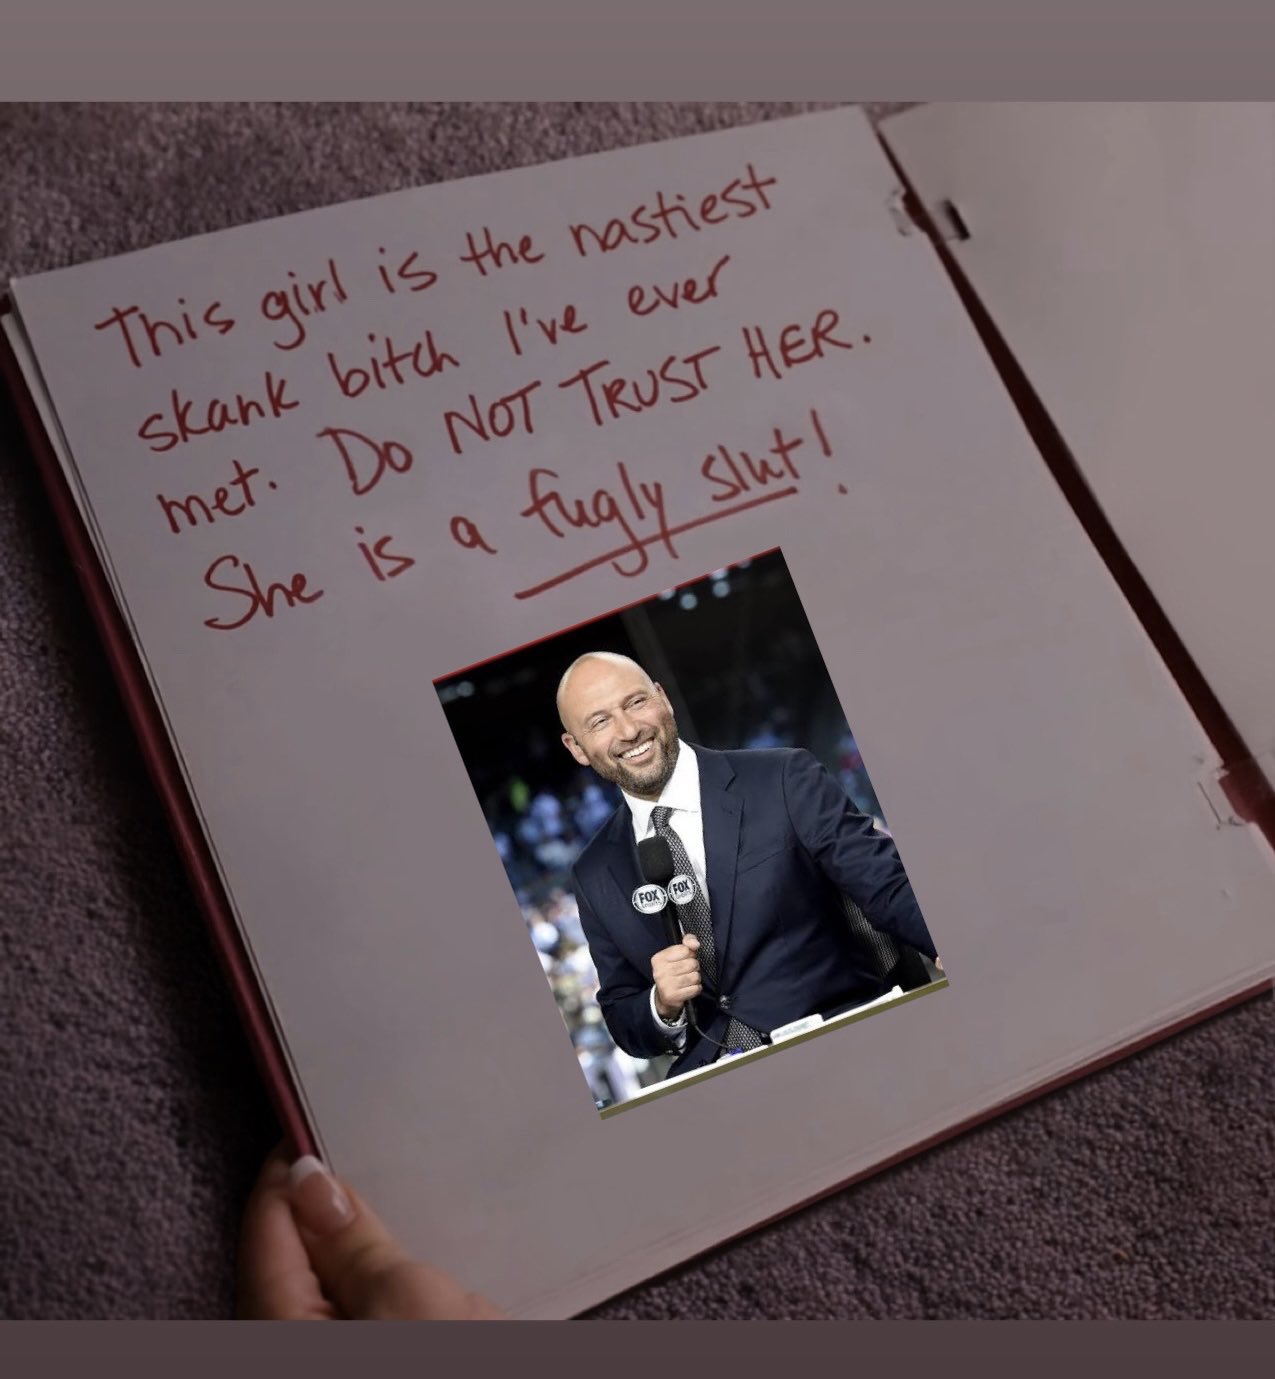 This girl is the nastiest
skank bitch I've ever
met. Do NOT TRUST HER.
She is a fugly slut!
FOX FOX
SPORTS SPORTS